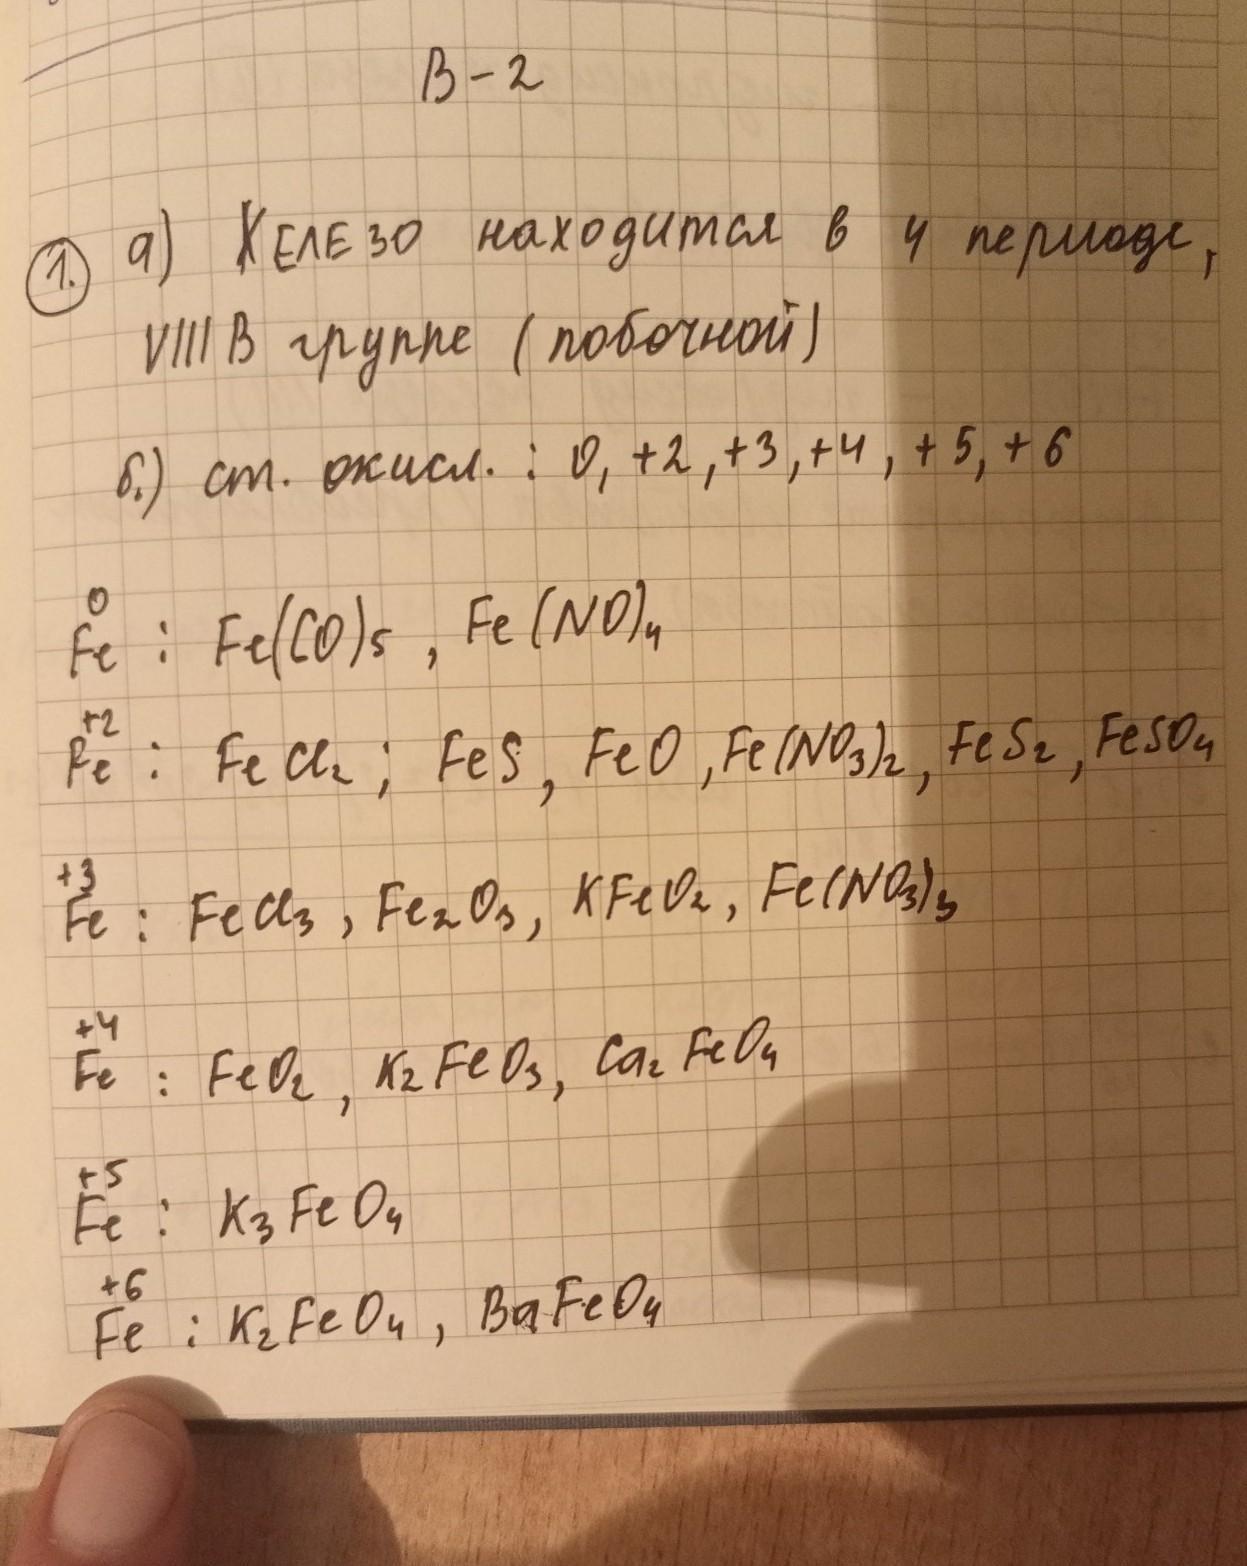 В-2
1. а) Железо находится в 4 периоде,
VIII В группе (побочной)
б.) ст. окисл. : 0, +2, +3, +4, +5, +6
0
Fe : Fe(CO)5, Fe(NO)4
+2
Fe : FeCl2; FeS, FeO, Fe(NO3)2, FeS2, FeSO4
+3
Fe : FeCl3, Fe2O3, KFeO2, Fe(NO3)3
+4
Fe : FeO2, K2FeO3, Ca2FeO4
+5
Fe : K3FeO4
+6
Fe : K2FeO4, BaFeO4